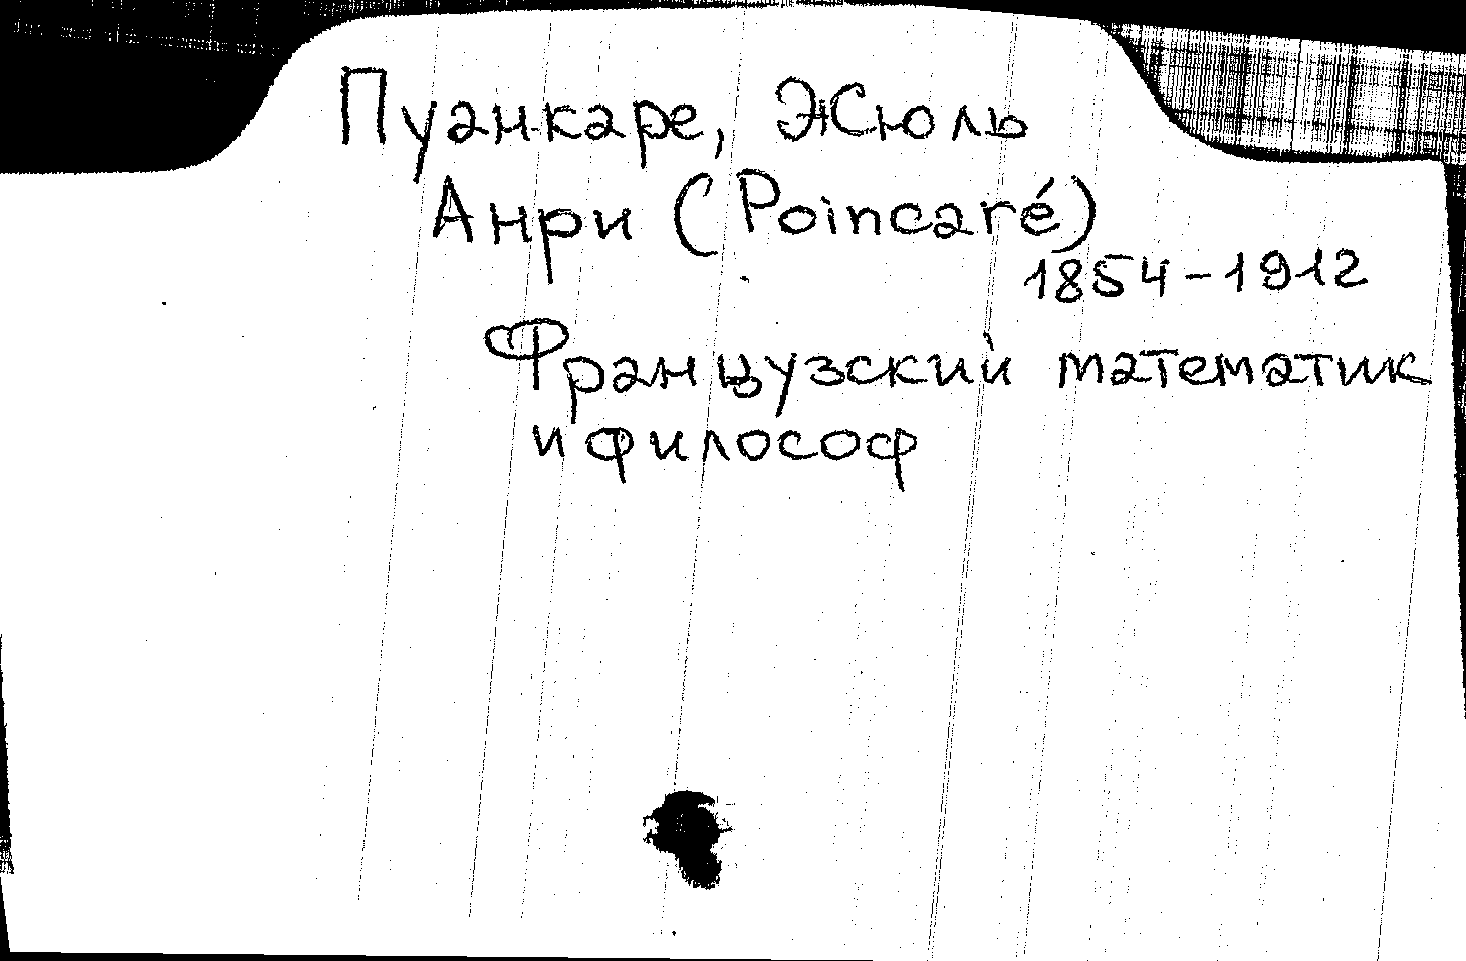 Пуанкаре, Жюль
Анри (Poincaré)
1854-1912
Французский математик
и философ